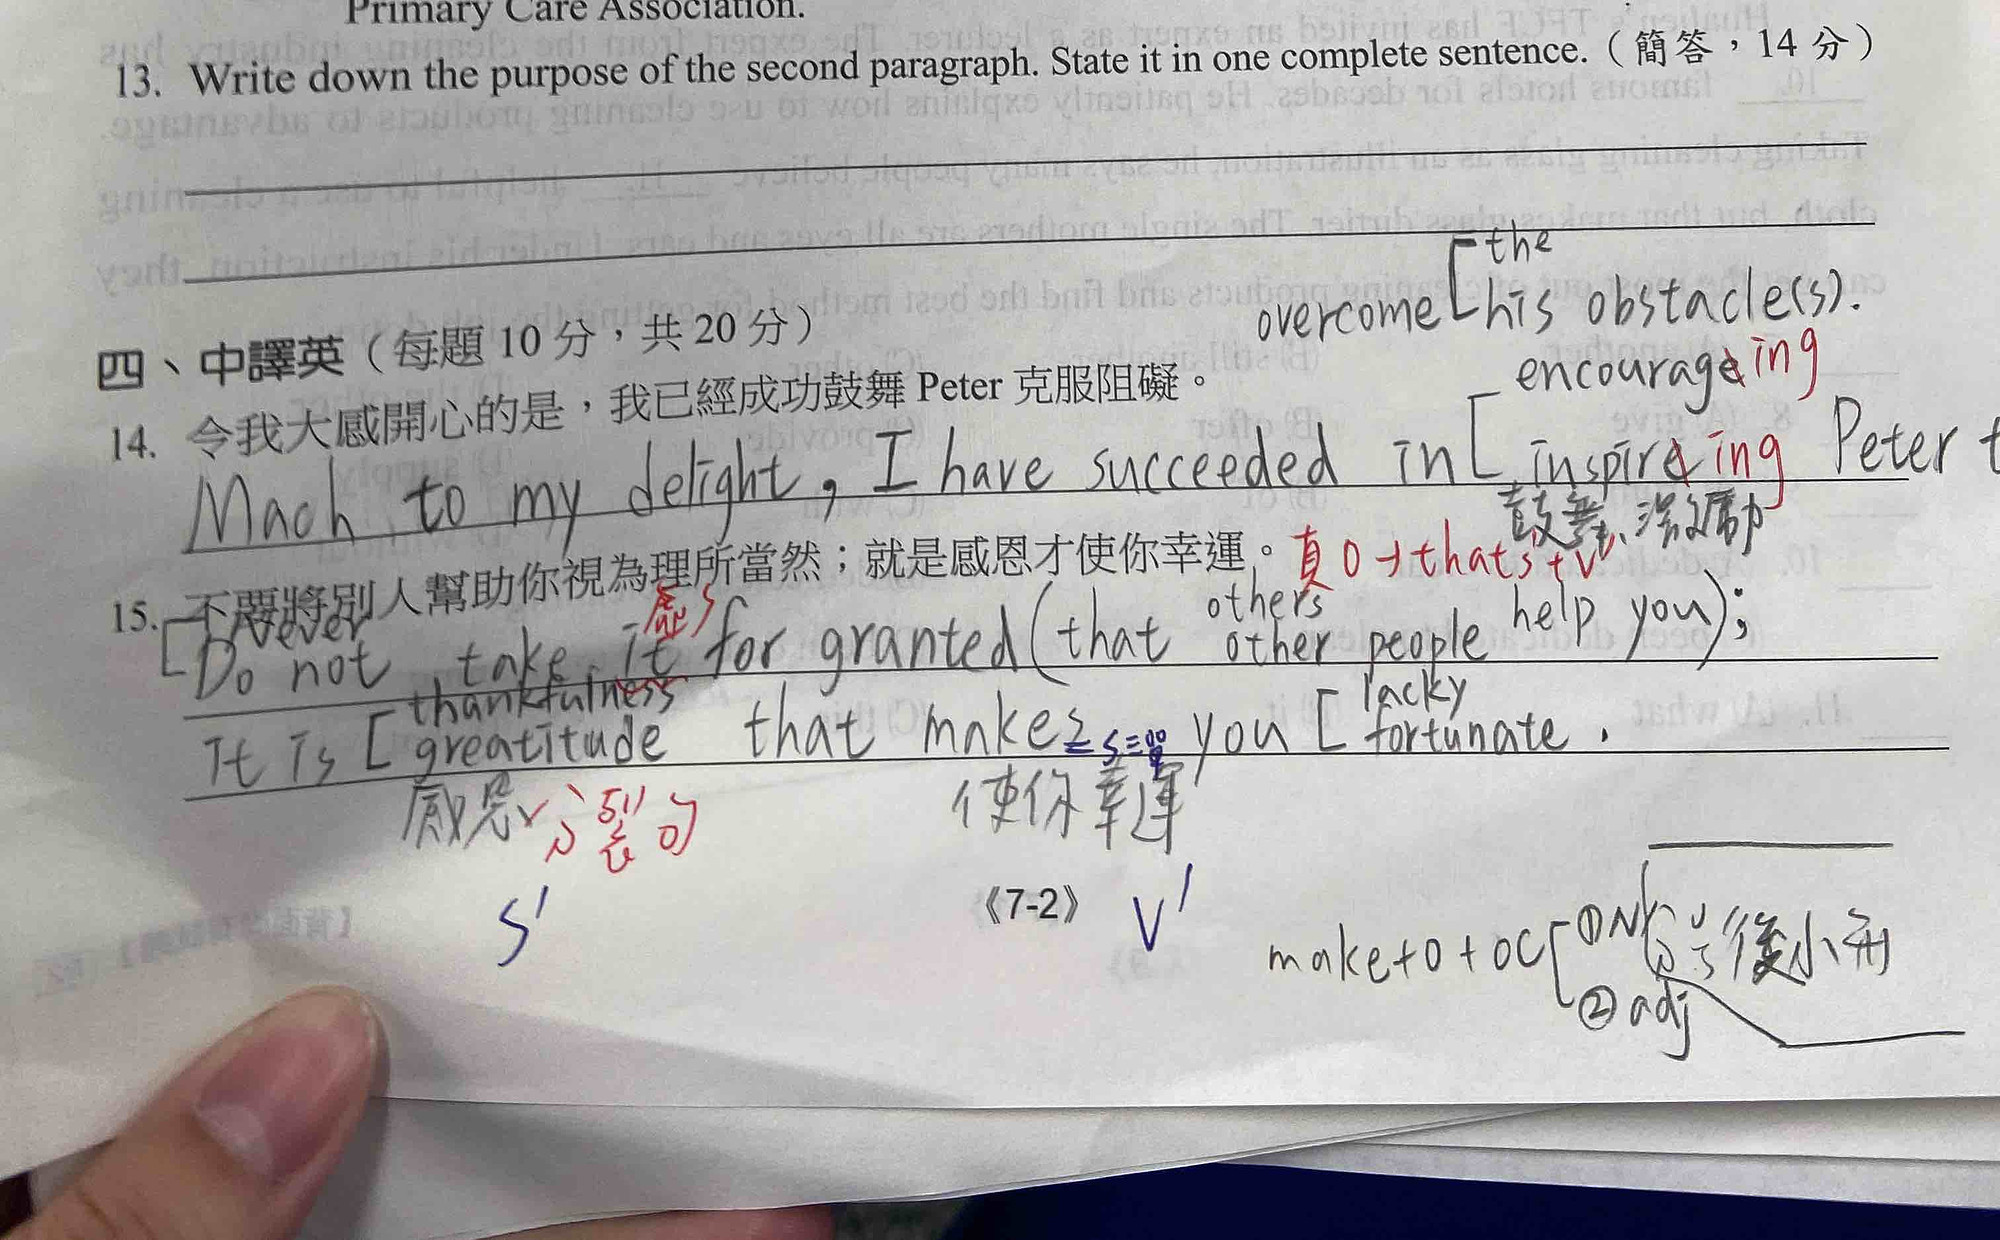 Primary Care Association.
13. Write down the purpose of the second paragraph. State it in one complete sentence.（簡答，14 分）
the
overcome his obstacle(s).
四、中譯英（每題 10 分，共 20 分）
encourage ing
14. 令我大感開心的是，我已經成功鼓舞 Peter 克服阻礙。
Mach to my delight, I have succeeded in [ inspire ing Peter t
鼓舞、激勵
15. 不要將別人幫助你視為理所當然；就是感恩才使你幸運。真O→that s+v
never others
[Do not take it for granted (that other people help you);
thankfulness lacky
It is [ greatitude that makes you [ fortunate .
s=單
感恩 強 句 使你幸運
S' 《7-2》 V'
make+O+OC ①N
後小
②adj